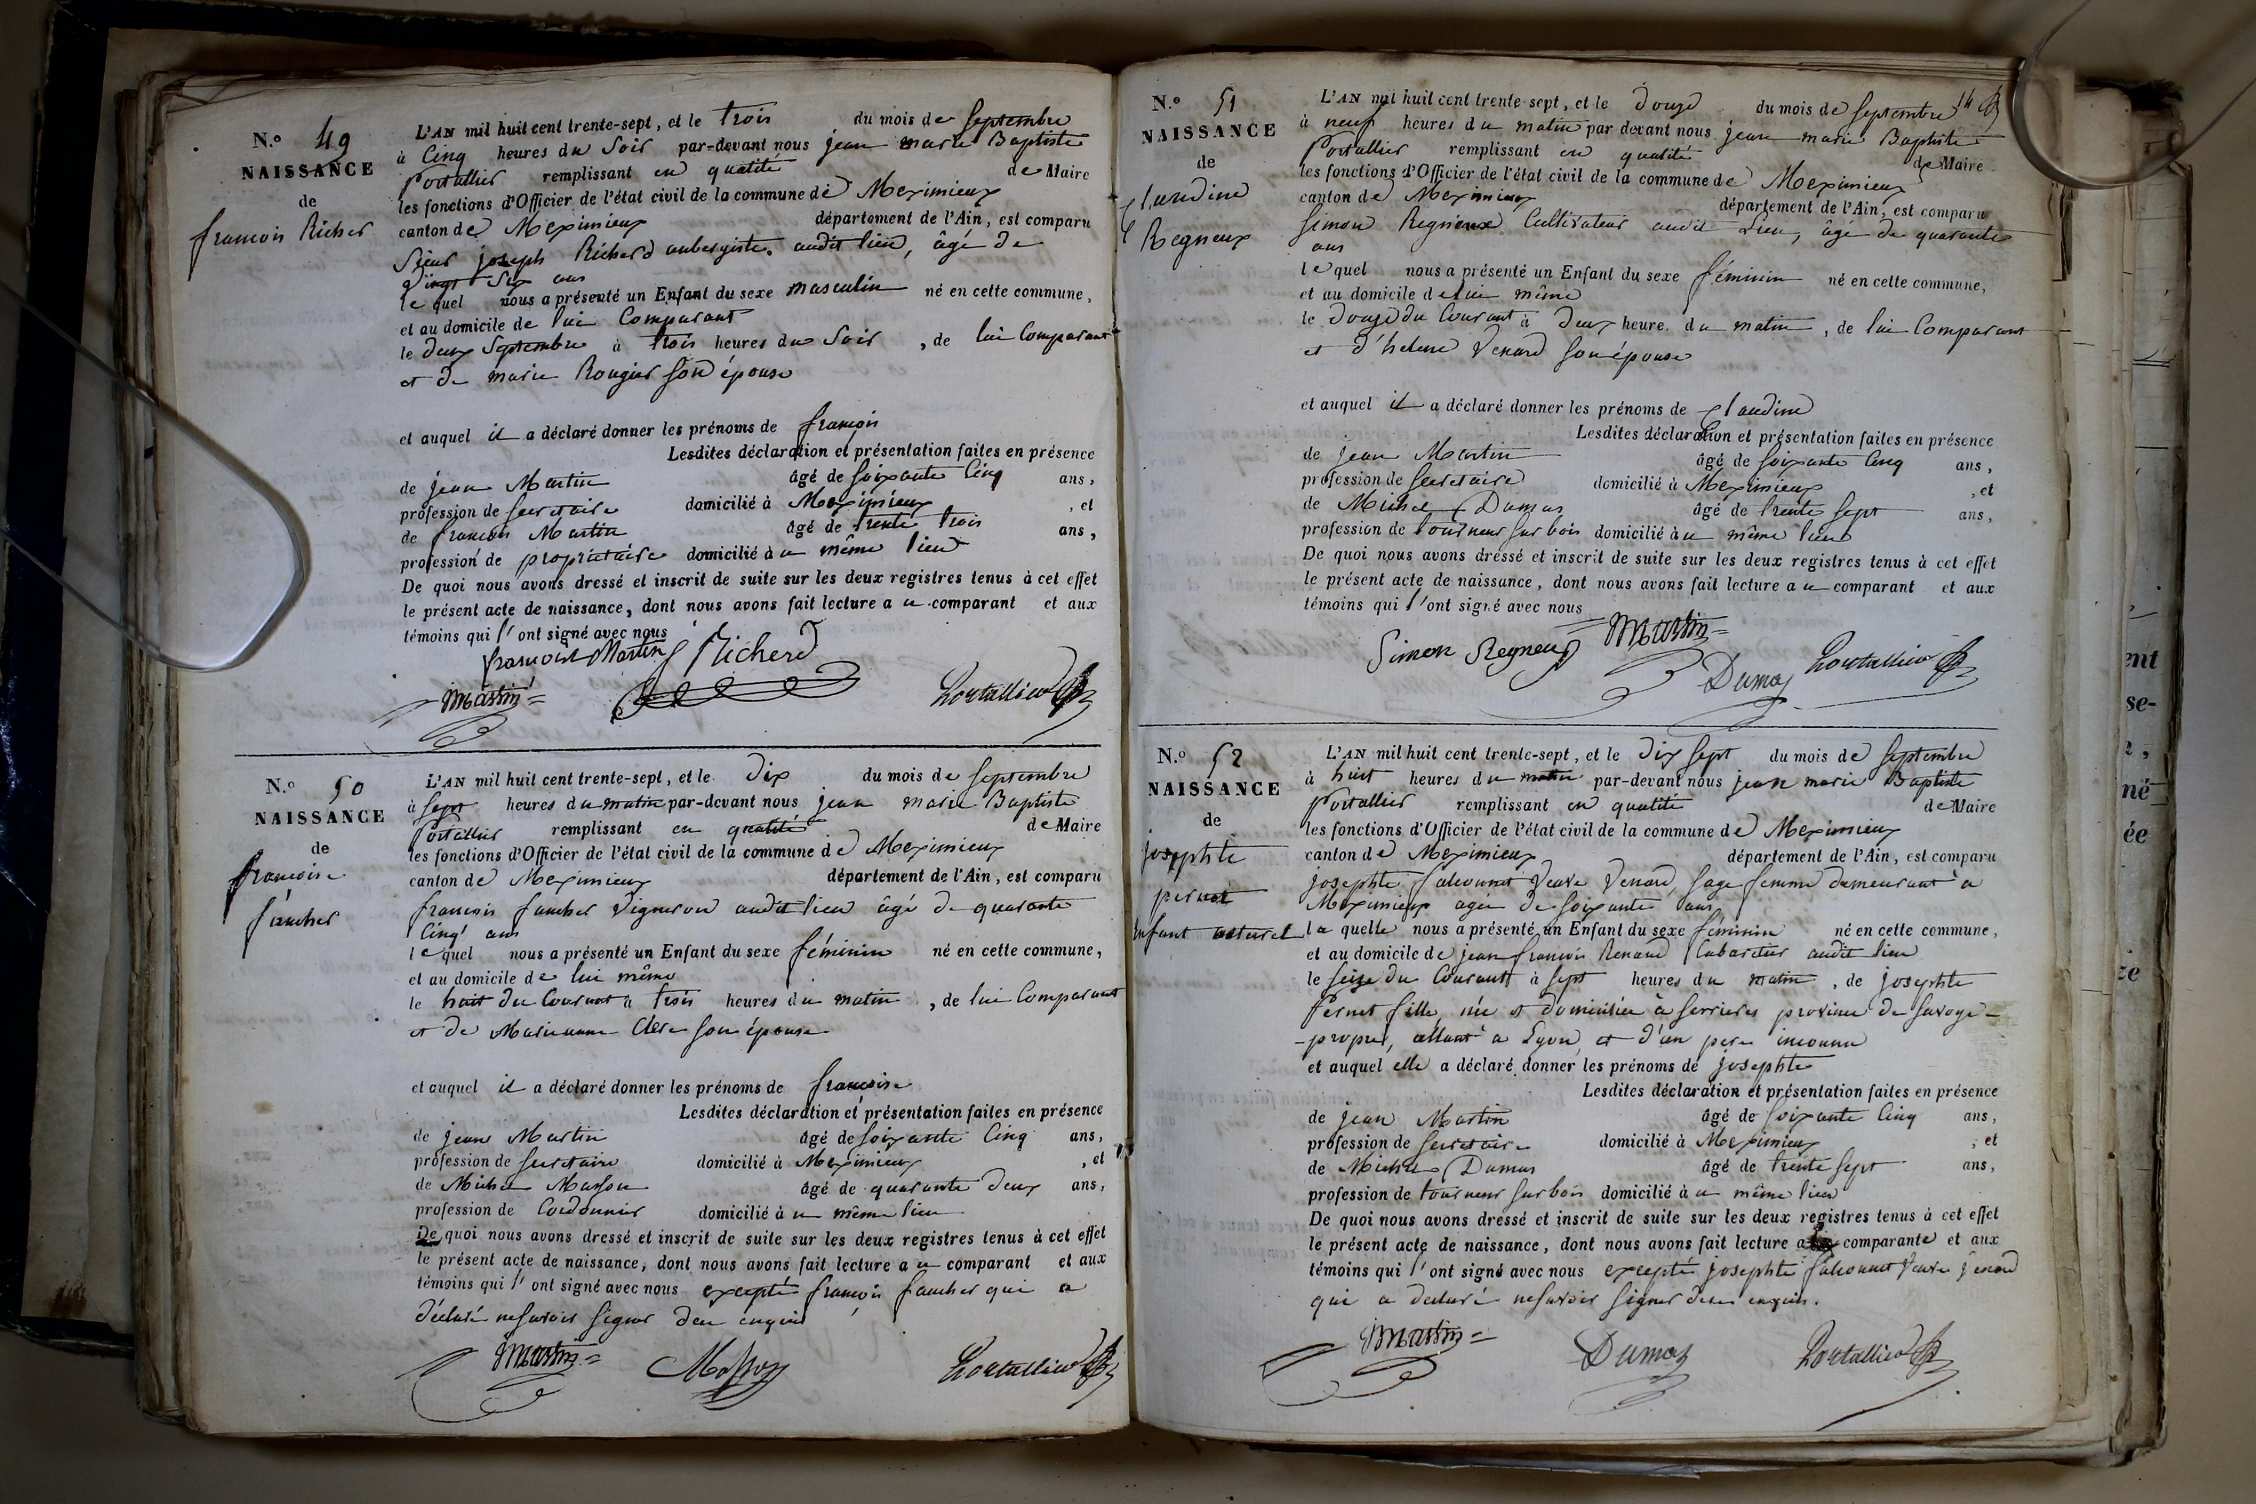 N.º 49
NAISSANCE
de
francois Richer
L'AN mil huit cent trente-sept, et le trois du mois de Septembre
à Cinq heures du Soir par-devant nous jean marie Baptiste
Portallier remplissant en qualité de Maire
les fonctions d'Officier de l'état civil de la commune de Meximieux
canton de Meximieux département de l'Ain, est comparu
Sieur joseph Richerd aubergiste audit lieu, âgé de
Vingt Six ans
le quel nous a présenté un Enfant du sexe masculin né en cette commune,
et au domicile de lui Comparant
le deux Septembre à trois heures du Soir, de lui Comparant
et de marie Rougier son épouse
et auquel il a déclaré donner les prénoms de françois
Lesdites déclaration et présentation faites en présence
de jean Martin âgé de soixante Cinq ans,
profession de secretaire domicilié à Meximieux, et
de francois Martin âgé de trente trois ans,
profession de propriétaire domicilié au même lieu
De quoi nous avons dressé et inscrit de suite sur les deux registres tenus à cet effet
le présent acte de naissance, dont nous avons fait lecture au comparant et aux
témoins qui l'ont signé avec nous
françois Martin J Richerd
Martin Portallier
N.º 50
NAISSANCE
de
francoise
faucher
L'AN mil huit cent trente-sept, et le Dix du mois de Septembre
à Sept heures du matin par-devant nous jean marie Baptiste
Portallier remplissant en qualité de Maire
les fonctions d'Officier de l'état civil de la commune de Meximieux
canton de Meximieux département de l'Ain, est comparu
francois faucher Vigneron audit lieu âgé de quarante
Cinq ans
le quel nous a présenté un Enfant du sexe féminin né en cette commune,
et au domicile de lui même
le huit du Courant à trois heures du matin, de lui Comparant
et de Marianne Clerc son épouse
et auquel il a déclaré donner les prénoms de francoise
Lesdites déclaration et présentation faites en présence
de jean Martin âgé de soixante Cinq ans,
profession de secretaire domicilié à Meximieux, et
de Michel Masson âgé de quarante deux ans,
profession de Cordonnier domicilié au même lieu
De quoi nous avons dressé et inscrit de suite sur les deux registres tenus à cet effet
le présent acte de naissance, dont nous avons fait lecture au comparant et aux
témoins qui l'ont signé avec nous excepté françois faucher qui a
déclaré ne savoir signer de ce enquis
Martin Masson Portallier
N.º 51
NAISSANCE
de
Claudine
Regneux
L'AN mil huit cent trente-sept, et le douze du mois de Septembre
à neuf heures du matin par-devant nous jean marie Baptiste
Portallier remplissant en qualité de Maire
les fonctions d'Officier de l'état civil de la commune de Meximieux
canton de Meximieux département de l'Ain, est comparu
Simon Regneux Cultivateur audit Lieu, âgé de quarante
ans
le quel nous a présenté un Enfant du sexe féminin né en cette commune,
et au domicile de lui même
le douze du Courant à deux heure du matin, de lui Comparant
et d'helene Venard son épouse
et auquel il a déclaré donner les prénoms de Claudine
Lesdites déclaration et présentation faites en présence
de jean Martin âgé de soixante Cinq ans,
profession de secretaire domicilié à Meximieux, et
de Michel Dumas âgé de trente sept ans,
profession de tourneur sur bois domicilié au même lieu
De quoi nous avons dressé et inscrit de suite sur les deux registres tenus à cet effet
le présent acte de naissance, dont nous avons fait lecture au comparant et aux
témoins qui l'ont signé avec nous
Simon Regneux Martin
Dumas Portallier
N.º 52
NAISSANCE
de
josephte
pernet
Enfant naturel
L'AN mil huit cent trente-sept, et le dix sept du mois de Septembre
à huit heures du matin par-devant nous jean marie Baptiste
Portallier remplissant en qualité de Maire
les fonctions d'Officier de l'état civil de la commune de Meximieux
canton de Meximieux département de l'Ain, est comparu
josephte falconnet Veuve Venard, sage femme demeurant à
Meximieux agée de soixante ans
la quelle nous a présenté un Enfant du sexe féminin né en cette commune,
et au domicile de jean francois Renaud Cabaretier audit lieu
le seize du Courant à sept heures du matin, de josephte
Pernet fille, née et domiciliée à serrieres province de savoye-
-propre, allant à Lyon, et d'un pere inconnu
et auquel elle a déclaré donner les prénoms de josephte
Lesdites déclaration et présentation faites en présence
de jean Martin âgé de soixante Cinq ans,
profession de secretaire domicilié à Meximieux, et
de Michel Dumas âgé de trente sept ans,
profession de tourneur sur bois domicilié au même lieu
De quoi nous avons dressé et inscrit de suite sur les deux registres tenus à cet effet
le présent acte de naissance, dont nous avons fait lecture a la comparante et aux
témoins qui l'ont signé avec nous excepté josephte falconnet Veuve Venard
qui a declaré ne savoir signer de ce enquise.
Martin Dumas Portallier